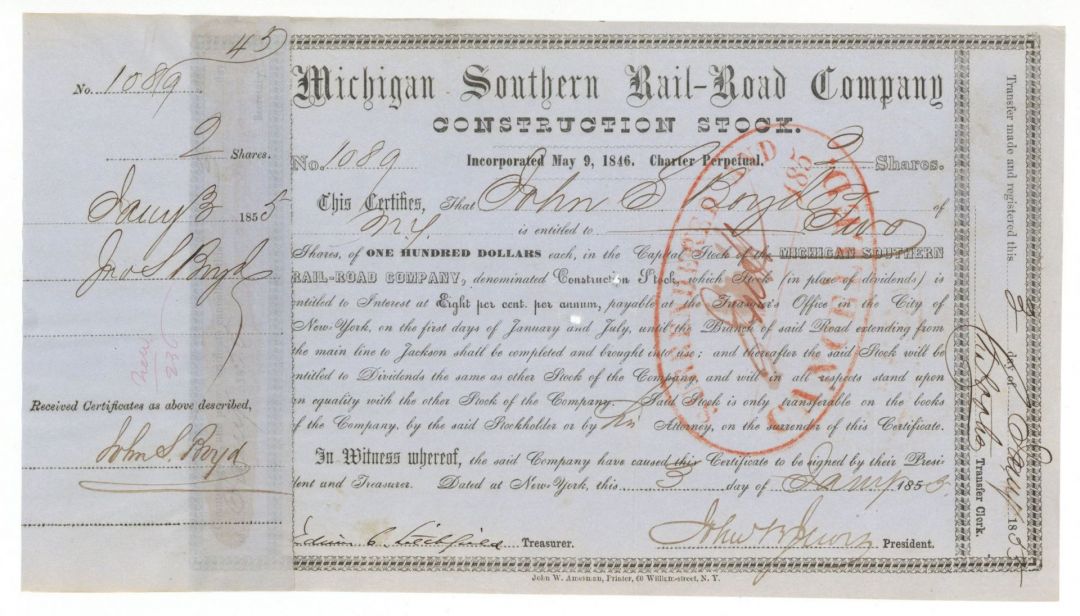 45
No. 1089
2 Shares.
Jany 3 1855
Jno S. Boyd
Received Certificates as above described,
John S. Boyd
Michigan Southern Rail-Road Company
CONSTRUCTION STOCK.
No. 1089 Incorporated May 9, 1846. Charter Perpetual. 2 Shares.
This Certifies, That John S Boyd of
N.Y. is entitled to Two
Shares, of ONE HUNDRED DOLLARS each, in the Capital Stock of the MICHIGAN SOUTHERN
RAIL-ROAD COMPANY, denominated Construction Stock, which Stock (in place of dividends) is
entitled to Interest at Eight per cent. per annum, payable at the Treasurer's Office in the City of
New-York, on the first days of January and July, until the Branch of said Road extending from
the main line to Jackson shall be completed and brought into use; and thereafter the said Stock will be
entitled to Dividends the same as other Stock of the Company, and will in all respects stand upon
an equality with the other Stock of the Company. Said Stock is only transferable on the books
of the Company, by the said Stockholder or by his Attorney, on the surrender of this Certificate.
In Witness whereof, the said Company have caused this Certificate to be signed by their Presi-
dent and Treasurer. Dated at New-York, this 3 day of Jany 1855.
Edwin C. Litchfield Treasurer. President.
John W. Amerman, Printer, 60 William-street, N. Y.
Transfer made and registered this
3 day of Jany 1855
Transfer Clerk.
CANCELLED